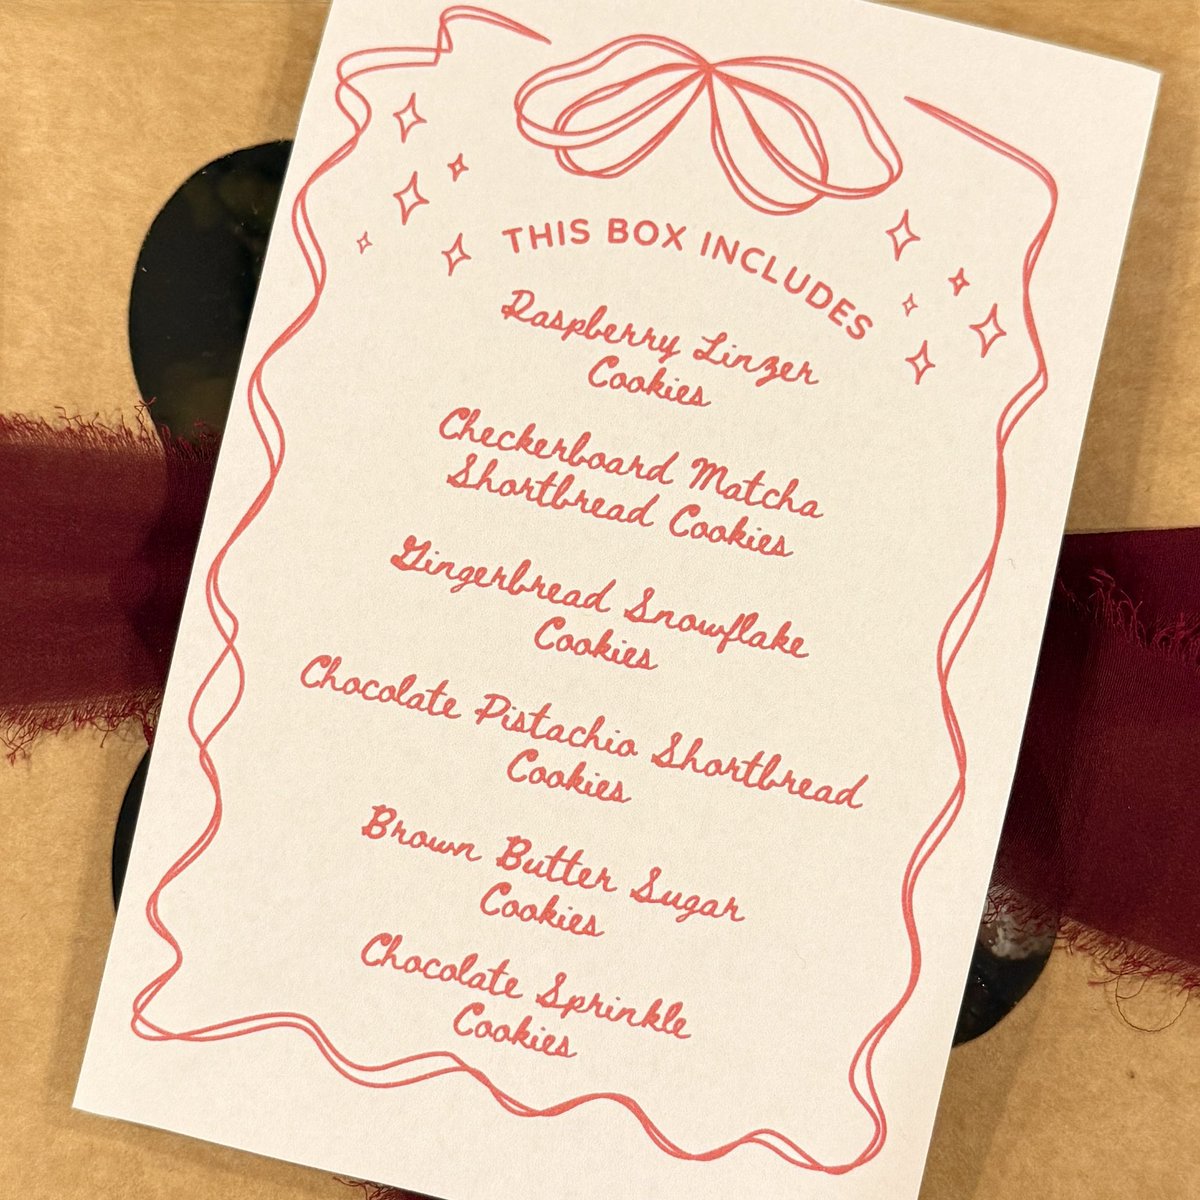 THIS BOX INCLUDES
Raspberry Linzer
Cookies
Checkerboard Matcha
Shortbread Cookies
Gingerbread Snowflake
Cookies
Chocolate Pistachio Shortbread
Cookies
Brown Butter Sugar
Cookies
Chocolate Sprinkle
Cookies